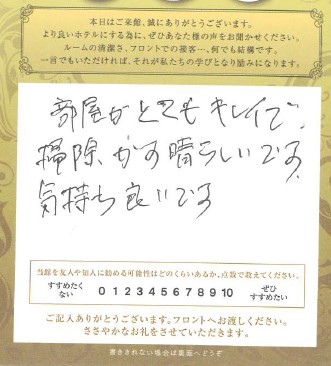 本日はご来館、誠にありがとうございます。
より良いホテルにする為に、ぜひあなた様の声をお聞かせください。
ルームの清潔さ、フロントでの接客…、何でも結構です。
一言でもいただければ、それが私たちの学びとなり励みになります。
部屋がとてもキレイで、
掃除がす晴らしいです。
気持ち良いです
当館を友人や知人に勧める可能性はどのくらいあるか、点数で教えてください。
すすめたくない 0 1 2 3 4 5 6 7 8 9 10 ぜひすすめたい
ご記入ありがとうございます。フロントへお渡しください。
ささやかなお礼をさせていただきます。
書ききれない場合は裏面へどうぞ